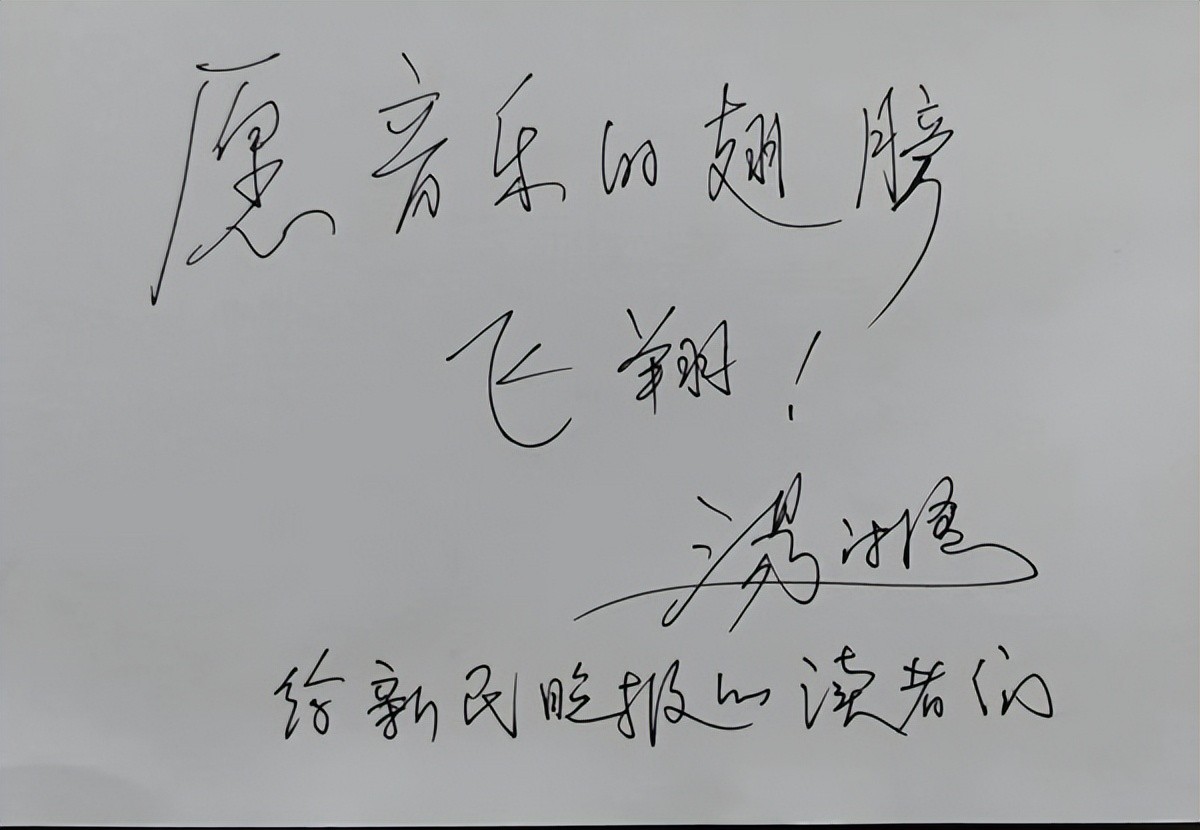 愿音乐的翅膀
飞翔！
湯沐海
给新民晚报的读者们